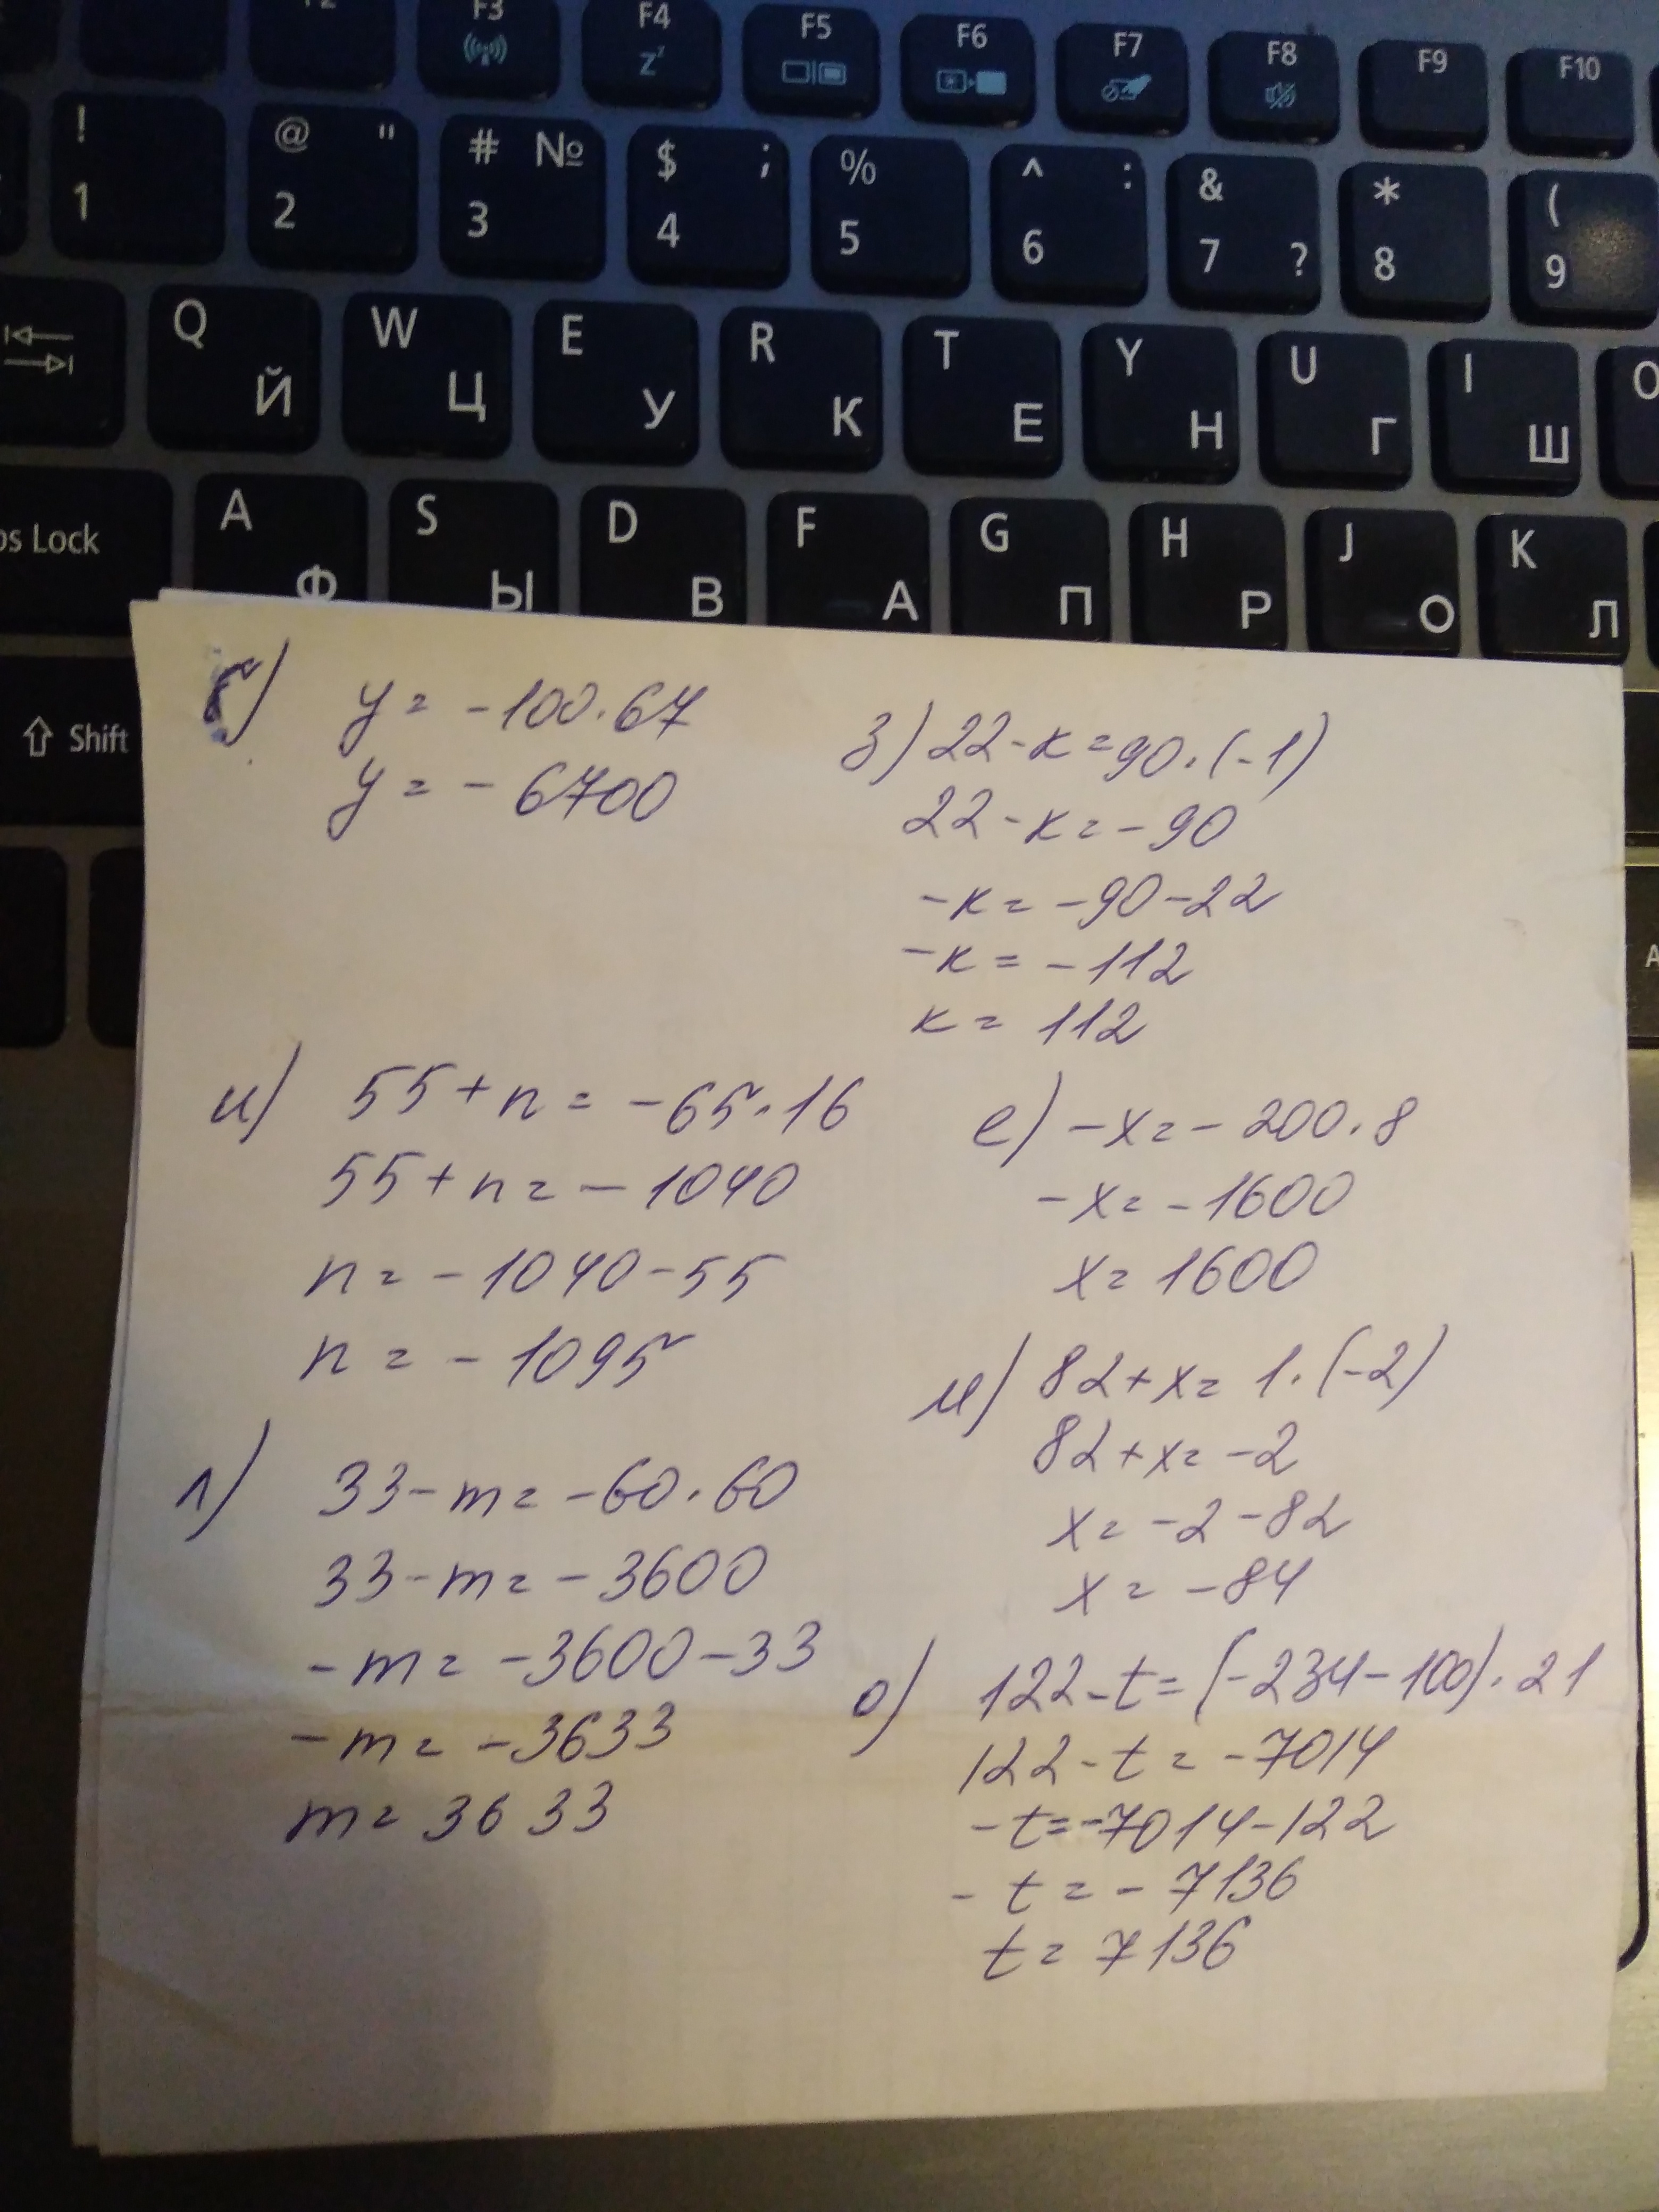 F3 F4 F5 F6 F7 F8 F9 F10
Z
! @ " # № $ ; % ^ : & * (
1 2 3 4 5 6 7 ? 8 9
Q W E R T Y U I O
Й Ц У К Е Н Г Ш
Lock A S D F G H J K
Ф Ы В А П Р О Л
Shift
A
y = -100·67
y = -6700
з) 22-к=90·(-1)
22-к=-90
-к= -90-22
-к = -112
к = 112
и) 55+n = -65·16
55+n = -1040
n = -1040-55
n = -1095
е) -x = -200·8
-x = -1600
x = 1600
л) 33-m = -60·60
33-m = -3600
-m = -3600-33
-m = -3633
m = 3633
м) 82+x = 1·(-2)
82+x = -2
x = -2-82
x = -84
о) 122-t = (-234-100)·21
122-t = -7014
-t = -7014-122
-t = -7136
t = 7136